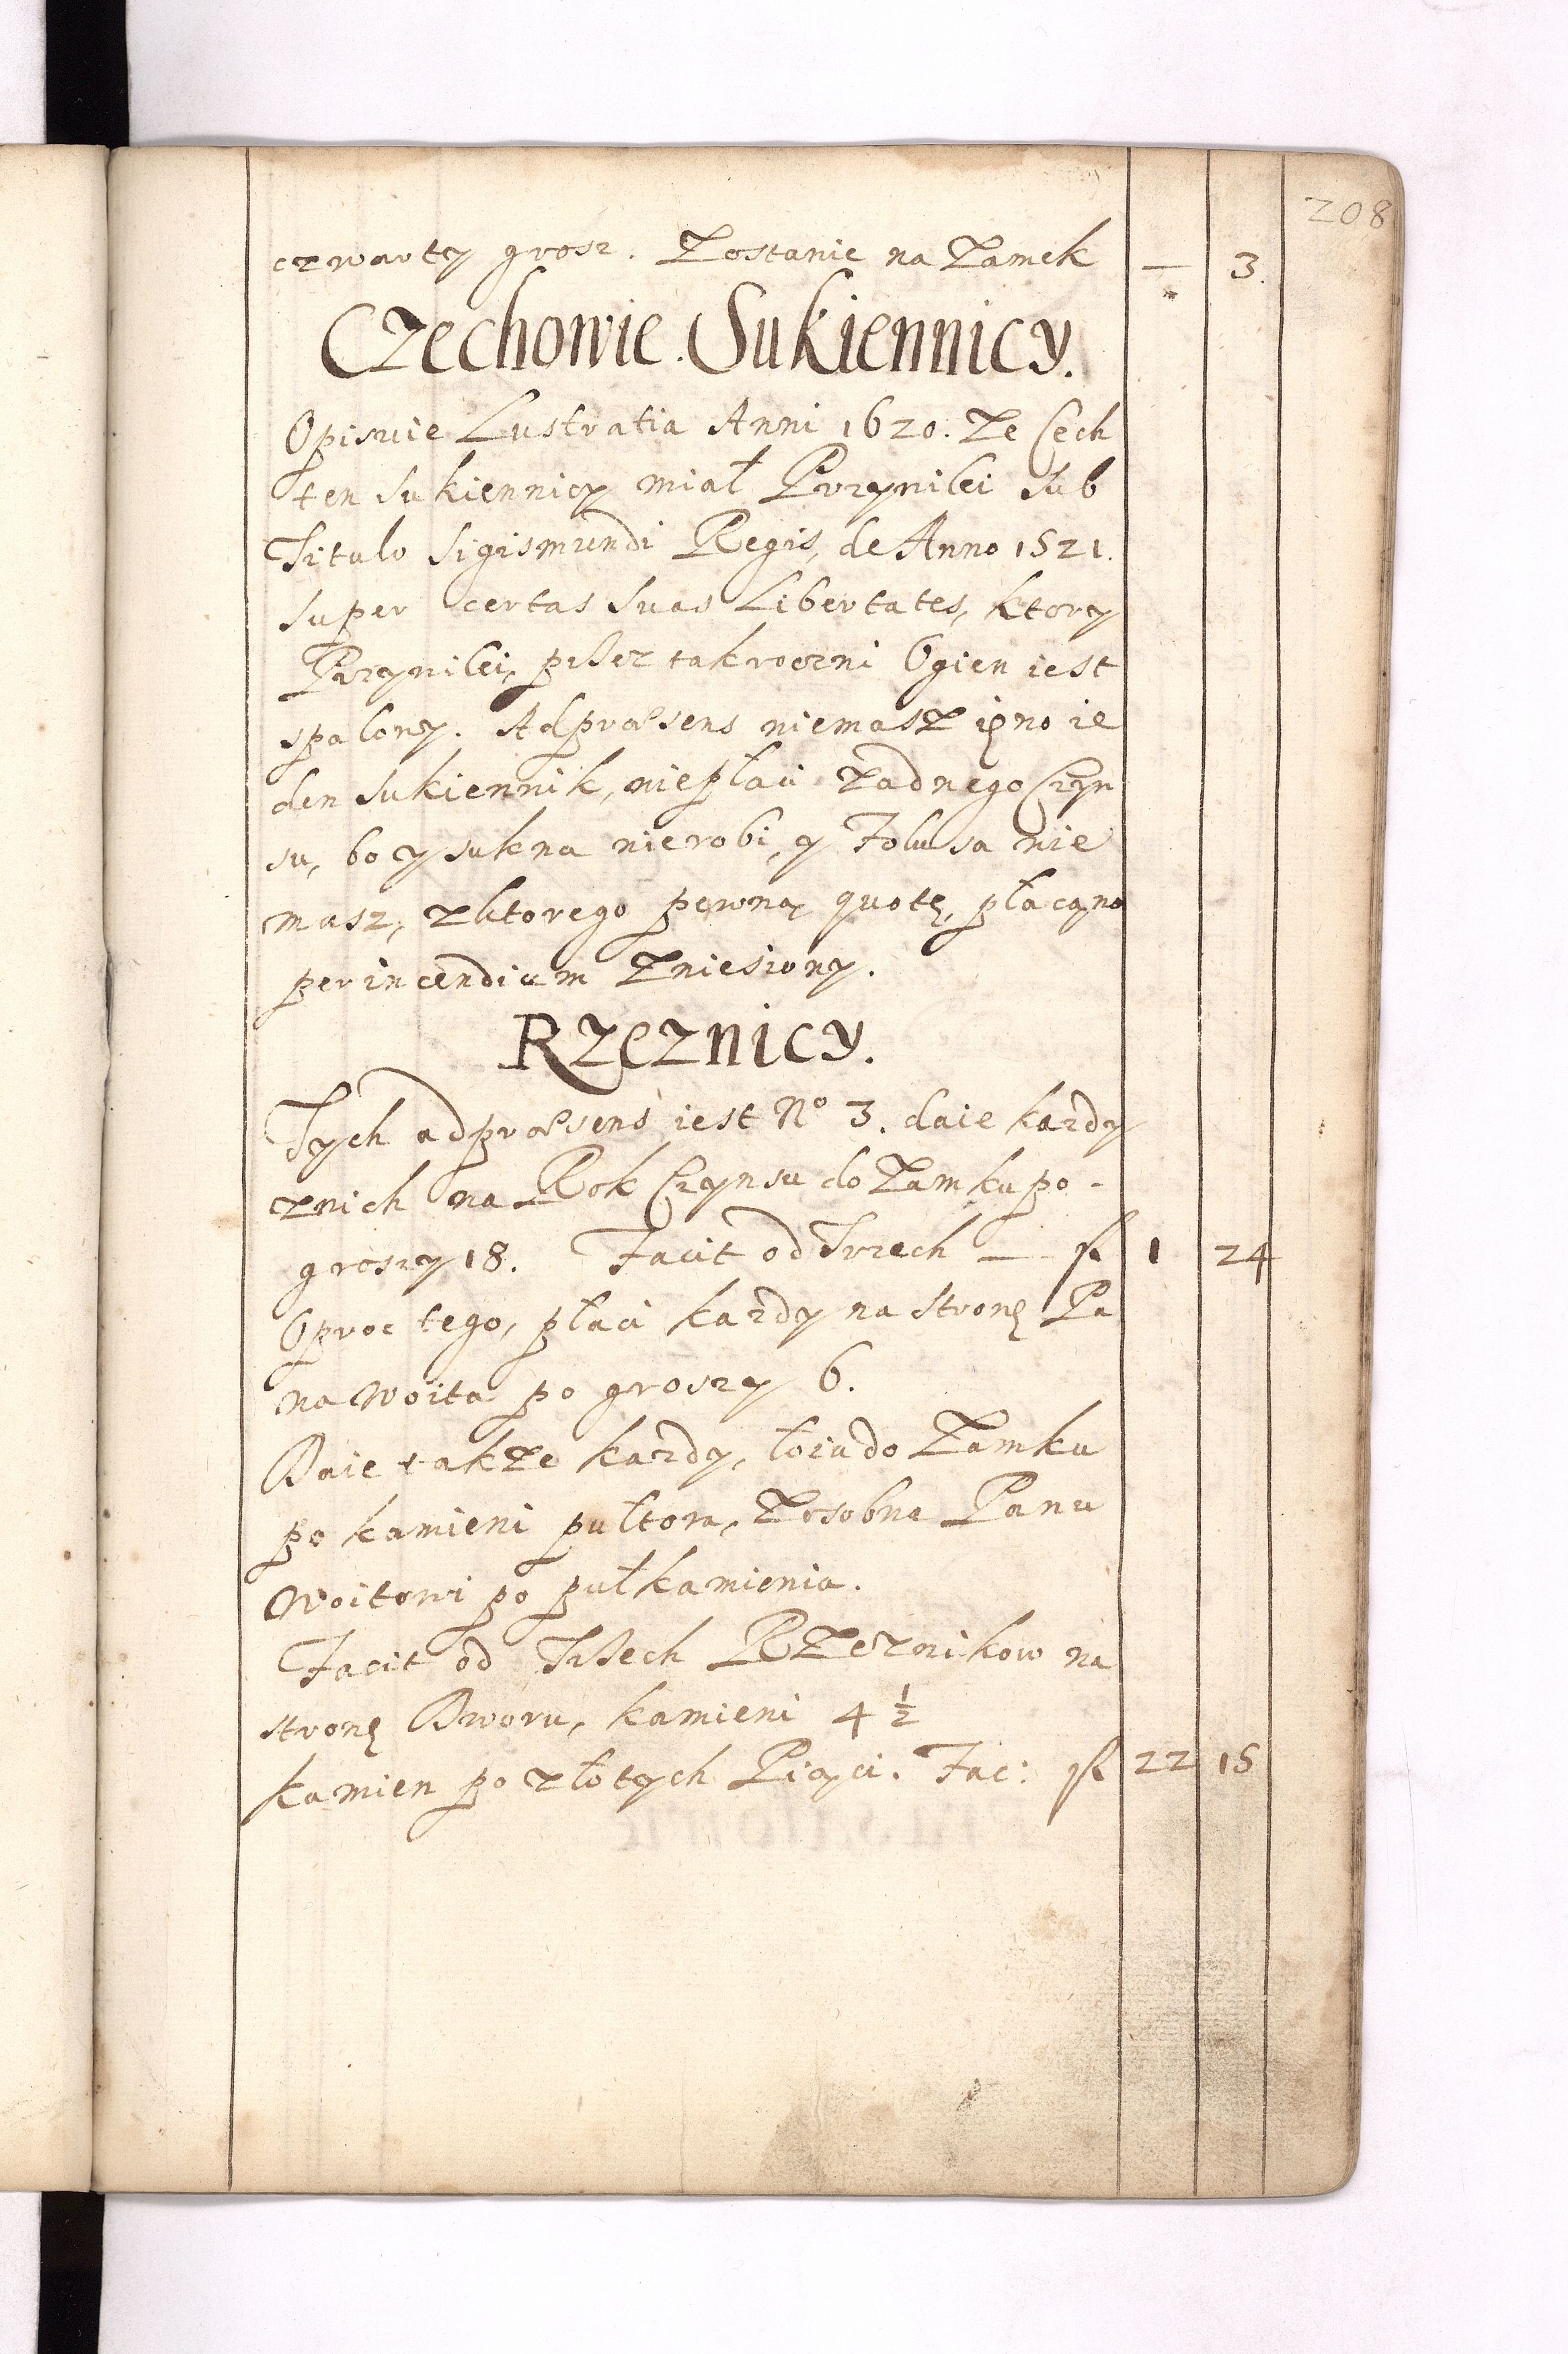 208
czwarty grosz. Zostanie na Zamek — 3.
Czechowie Sukiennicy.
Opisuie Lustratia Anni 1620. Ze Cech
ten Sukiennicy miał Przywilei Sub
Titulo Sigismundi Regis, de Anno 1521.
super certas suas Libertates, ktory
Przywilei, przez takroczni Ogien iest
spalony. Adpræsens niemasz ieno ie
den Sukiennik, niepłaci Zadnego Czyn
su, bo y sukna nierobi, y Folusa nie
masz, zktorego pewną quotę, płacono
per incendium Zniesiony.
Rzeznicy.
Tych adpræsens iest No 3. daie kazdy
znich na Rok Czynsu do Zamku po -
groszy 18. Facit od Trzech — fl 1 24
Oproc tego, płaci kazdy na stronę Pa
na Woita po groszy 6.
Daie takze kazdy, łoiu do Zamku
po kamieni pułtora, Zosobna Panu
Woitowi po pułkamienia.
Facit od Trzech Rzeznikow na
stronę Dworu, kamieni 4 1/2
kamien po złotych Piąci. Fac: fl 22 15